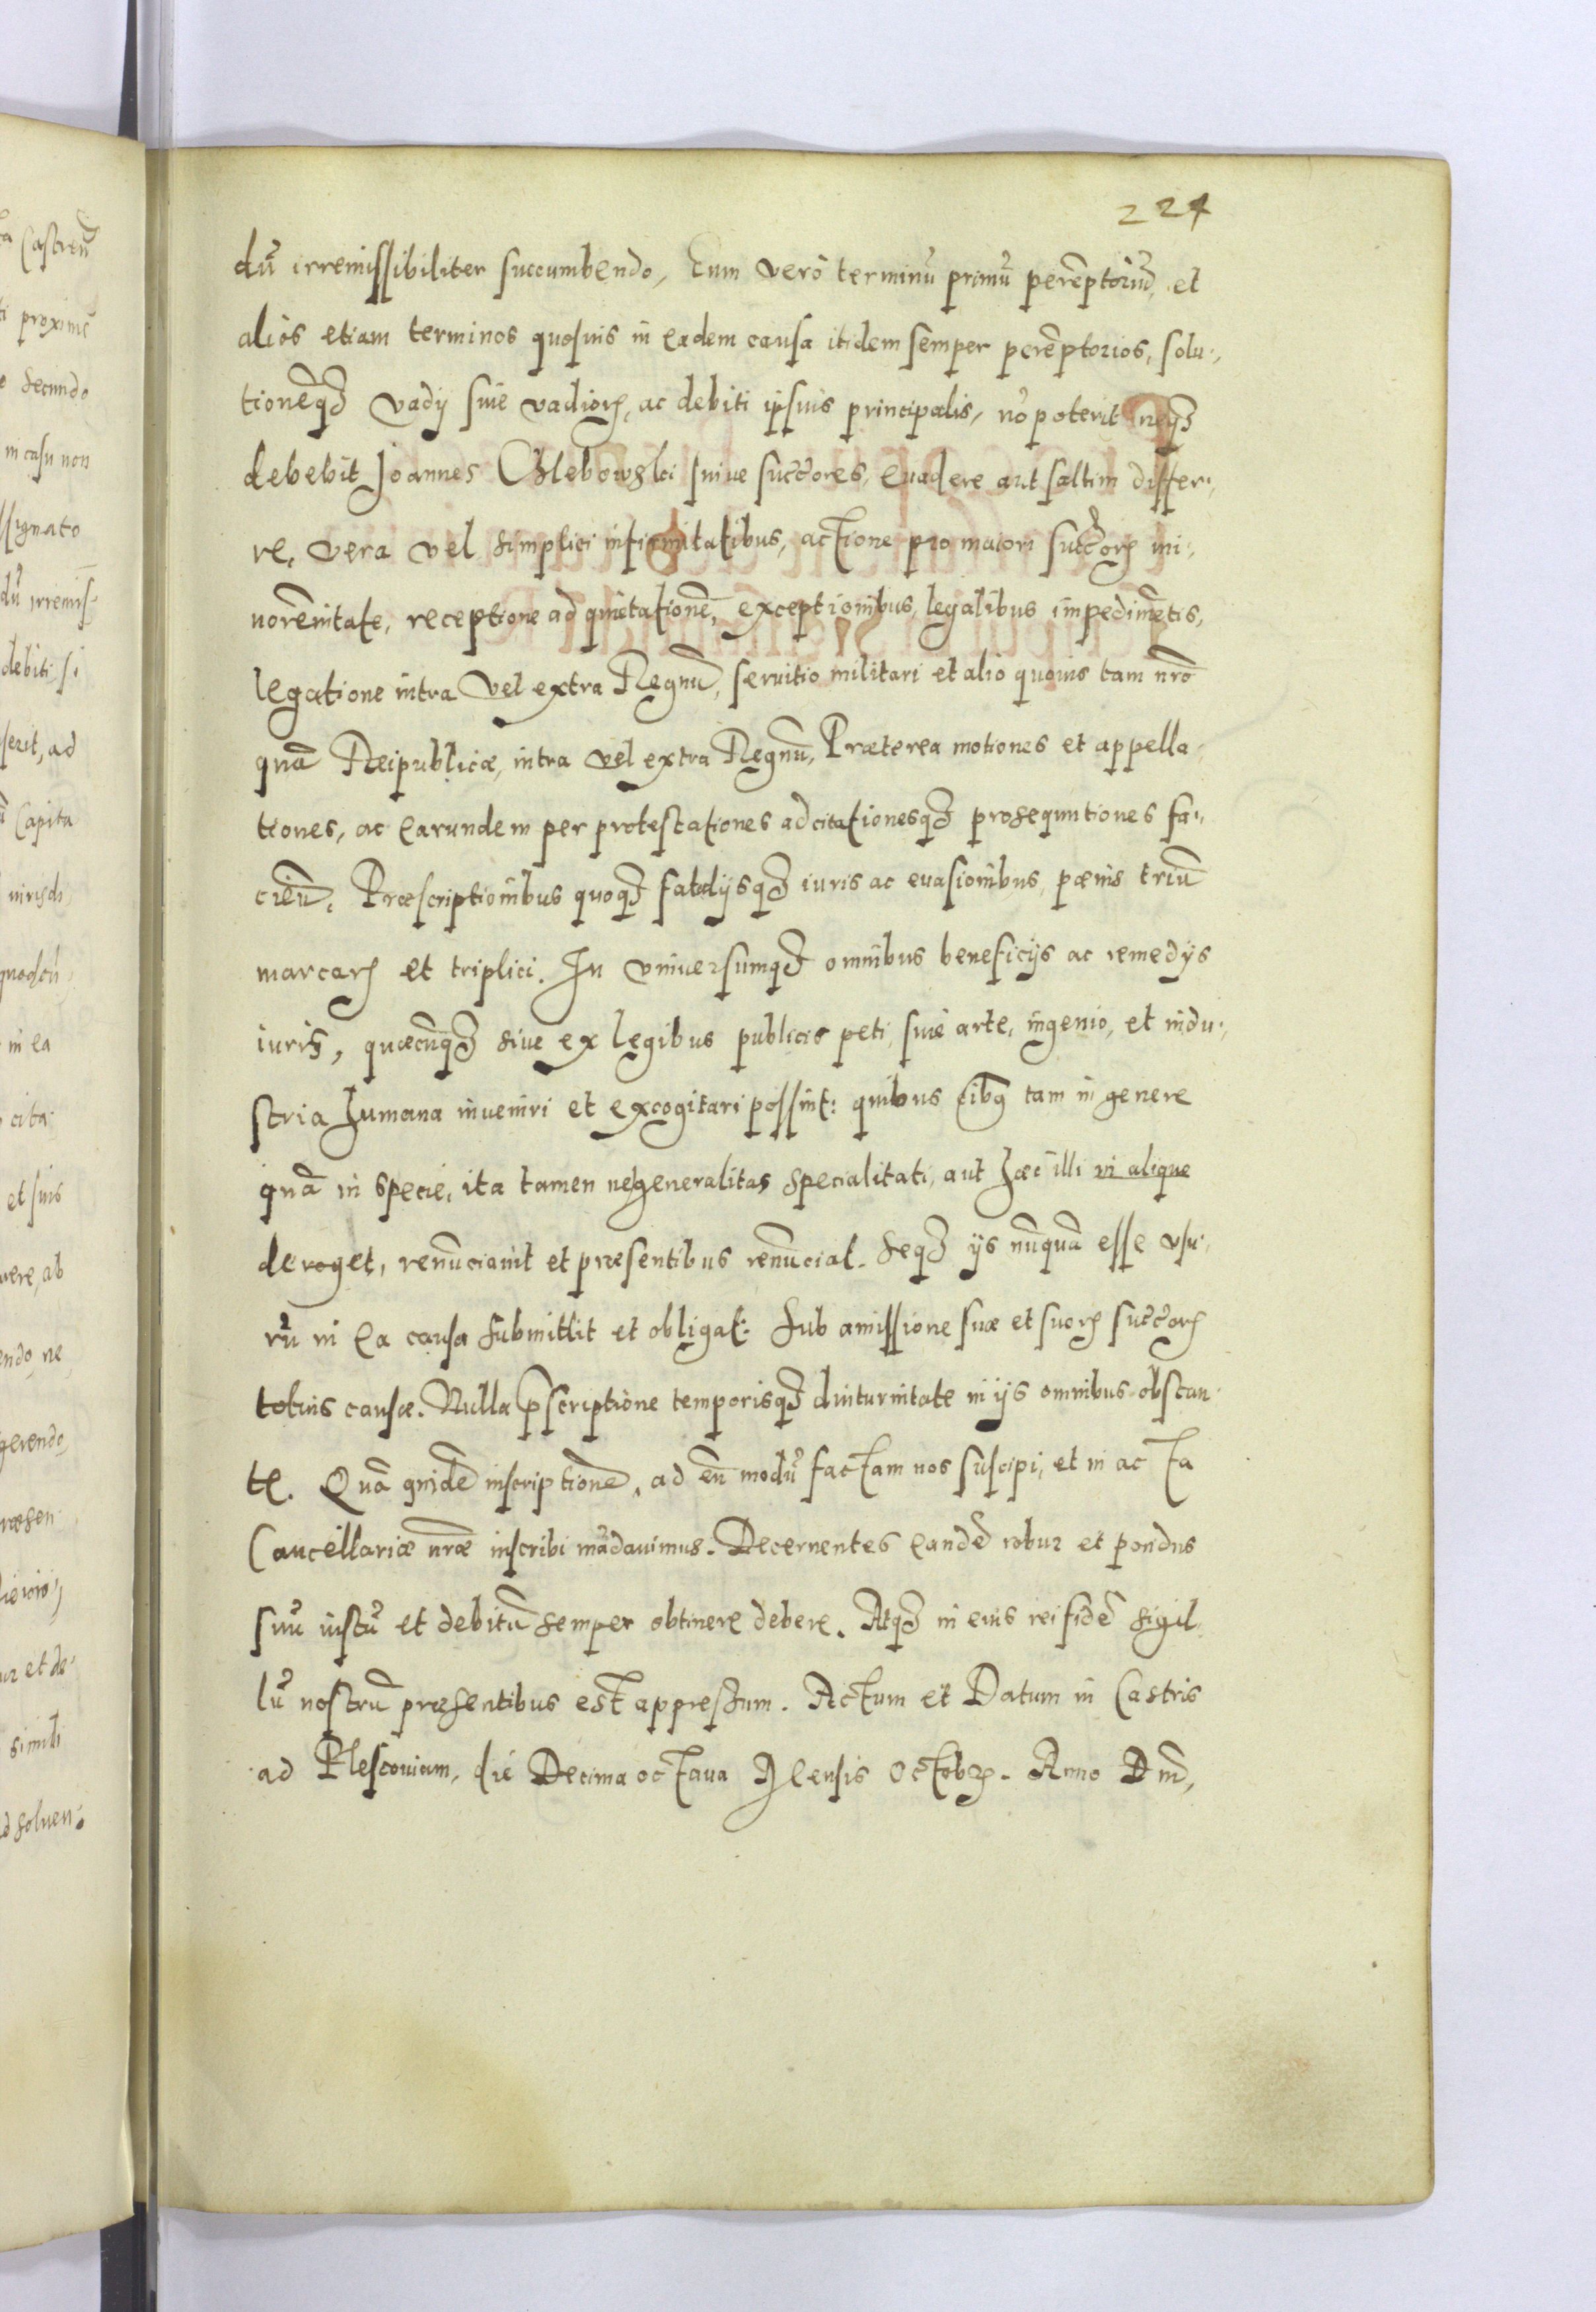 224
dũ irremissibiliter succumbendo, Eum verò terminũ primũ perẽptoriũ, et
aliòs etiam terminos quosuis in eadem causa itidem semper perẽptorios, solu-
tionẽq3 vadij siue vadiorꝝ, ac debiti ipsius principalis, nõ poterit neq3
debebit Joannes Chlebowski suiue succ̃ores, euadere aut saltim differ-
re, vera vel simplici infirmitatibus, actione pro maiori succ̃orꝝ mi-
norẽnitate, receptione ad quietationẽ, exceptionibus, legalibus impedimẽtis,
legatione intra vel extra Regnũ, seruitio militari et alio quouis tam nr̃o
quã Reipublicæ, intra vel extra Regnũ, Præterea motiones et appella-
tiones, ac earundem per protestationes ad citationesq3 prosequutiones fa-
cieñ. Præscriptionibus quoq3 fatalijsq3 iuris ac euasionibus, pœnis triũ
marcarꝝ et triplici. In vniuersumq3 omnibus beneficijs ac remedijs
iuris, quæcũq3 siue ex legibus publicis peti, siue arte, ingenio, et indu-
stria humana inueniri et excogitari possint: quibus oĩbꝯ tam in genere
quã in specie, ita tamen ne generalitas specialitati, aut hæc illi in aliquo
deroget, renũciauit et præsentibus renũciat. Seq3 ijs nũquã esse vsu-
rũ in ea causa submittit et obligat: Sub amissione suæ et suorꝝ succ̃orꝝ
totius causæ. Nulla p̃scriptione temporisq3 diuturnitate in ijs omnibus obstan-
te. Quã quidẽ inscriptionẽ, ad eũ modũ factam nos suscipi, et in acta
Cancellariæ nr̃æ inscribi mãdauimus. Decernentes eandẽ robur et pondus
suũ iustũ et debitũ semper obtinere debere. Atq3 in eius rei fidẽ sigil-
lũ nostrũ præsentibus est appressum. Actum et Datum in Castris
ad Plescouiam, die Decima octaua Mensis Octobrꝭ. Anno Dnĩ,